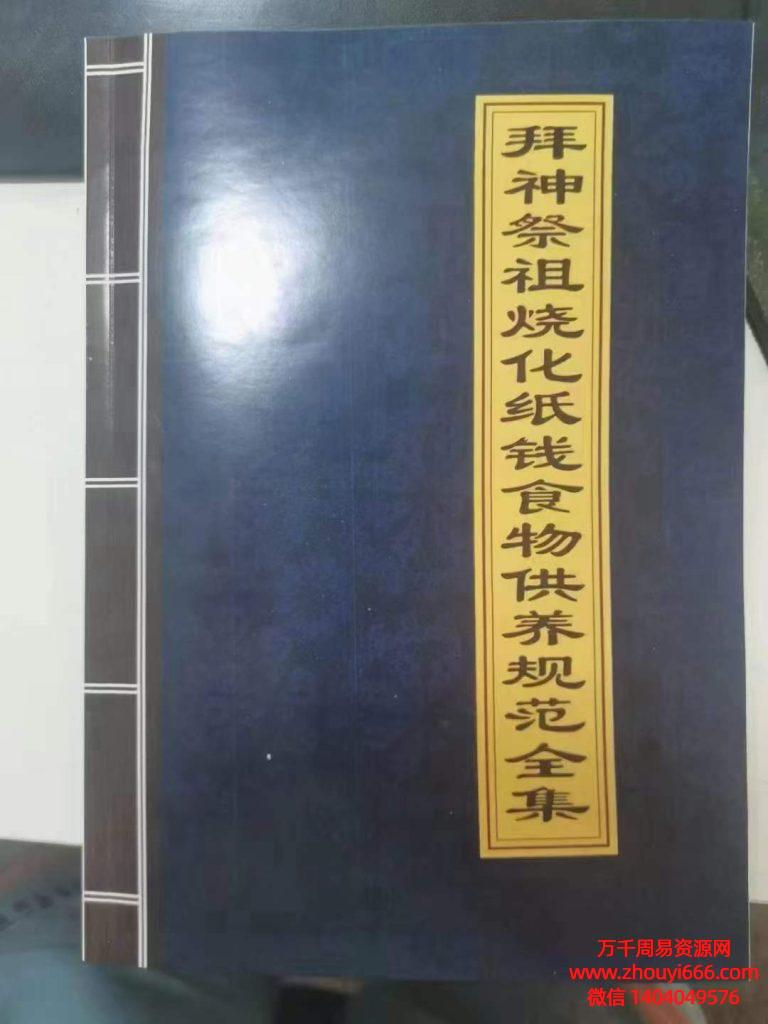 拜神祭祖烧化纸钱食物供养规范全集
万千周易资源网
www.zhouyi666.com
微信 1404049576